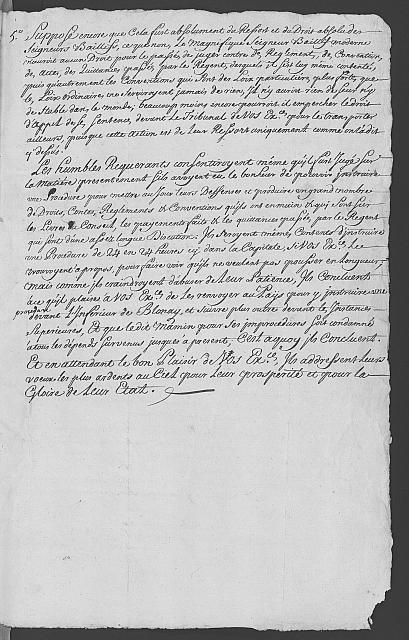 5.° Supposé encore que Cela fust absolument du Ressort et du Droit absolu des
Seigneurs Baillifs, ce que non, Le Magnifique Seigneur Baillif moderne
n'auroit aucun Droit pour le passé, de juger contre de, Reglement, de Convention,
de, Actes, de, Quittances passés, par le Regent, desquels il s'est luy même contenté,
puis qu'autrement les Conventions qui sont des Loix particulieres, plus fortes, que
les Loix ordinaires, ne serviroyent jamais de rien, Il n'y auroit rien de sur n'y
de stable dans le monde; beaucoup moins encore pourroit il empecher le droit
d'Appel de sa Sentence, devant le Tribunal de Vos Ex.ces pour les transporter
ailleurs, puisque cette action est de leur Ressort uniquement comme on l'a dit
cy dessus.
Les humbles Requerants consentiroyent même qu'il fust Jugé sur
la Matière presentement s'ils avoyent eu le bonheur de pouvoir instruire
une Procedure pour mettre au Jour leurs Deffenses et produire un grand nombre
de Droits, Contes, Reglements & Conventions qu'ils ont en main & qui sont sur
les Livres de Conseil, les payements faits & les quittances passées, par le Regent
qui sont d'une assés longue Discution. Ils seroyent mêmes Contents d'instruire
une Procedure de 24 en 24 heures icy dans la Capitale si Vos Ex.ces Le
trouvoyent à propos, pour faire voir qu'ils ne veulent pas pousser en longueur,
mais comme ils craindroyent d'abuser de Leur Patience, Ils Concluent
à ce qu'il plaise à Vos Ex.ces de Les renvoyer au Païs pour y instruire une
procedure
devant l'Inferieur de Blonay, et suivre plus outre devant les Instances
Superieures, Et que ledit Mamin pour ses improcedures soit condamné
à tous les dépends survenus jusques à present, C'est à quoy Ils Concluent.
Et en attendant le bon Plaisir de Vos Ex.ces, Ils addressent Leurs
voeux les plus ardents au Ciel pour Leur prosperité et pour la
Gloire de Leur Etat.